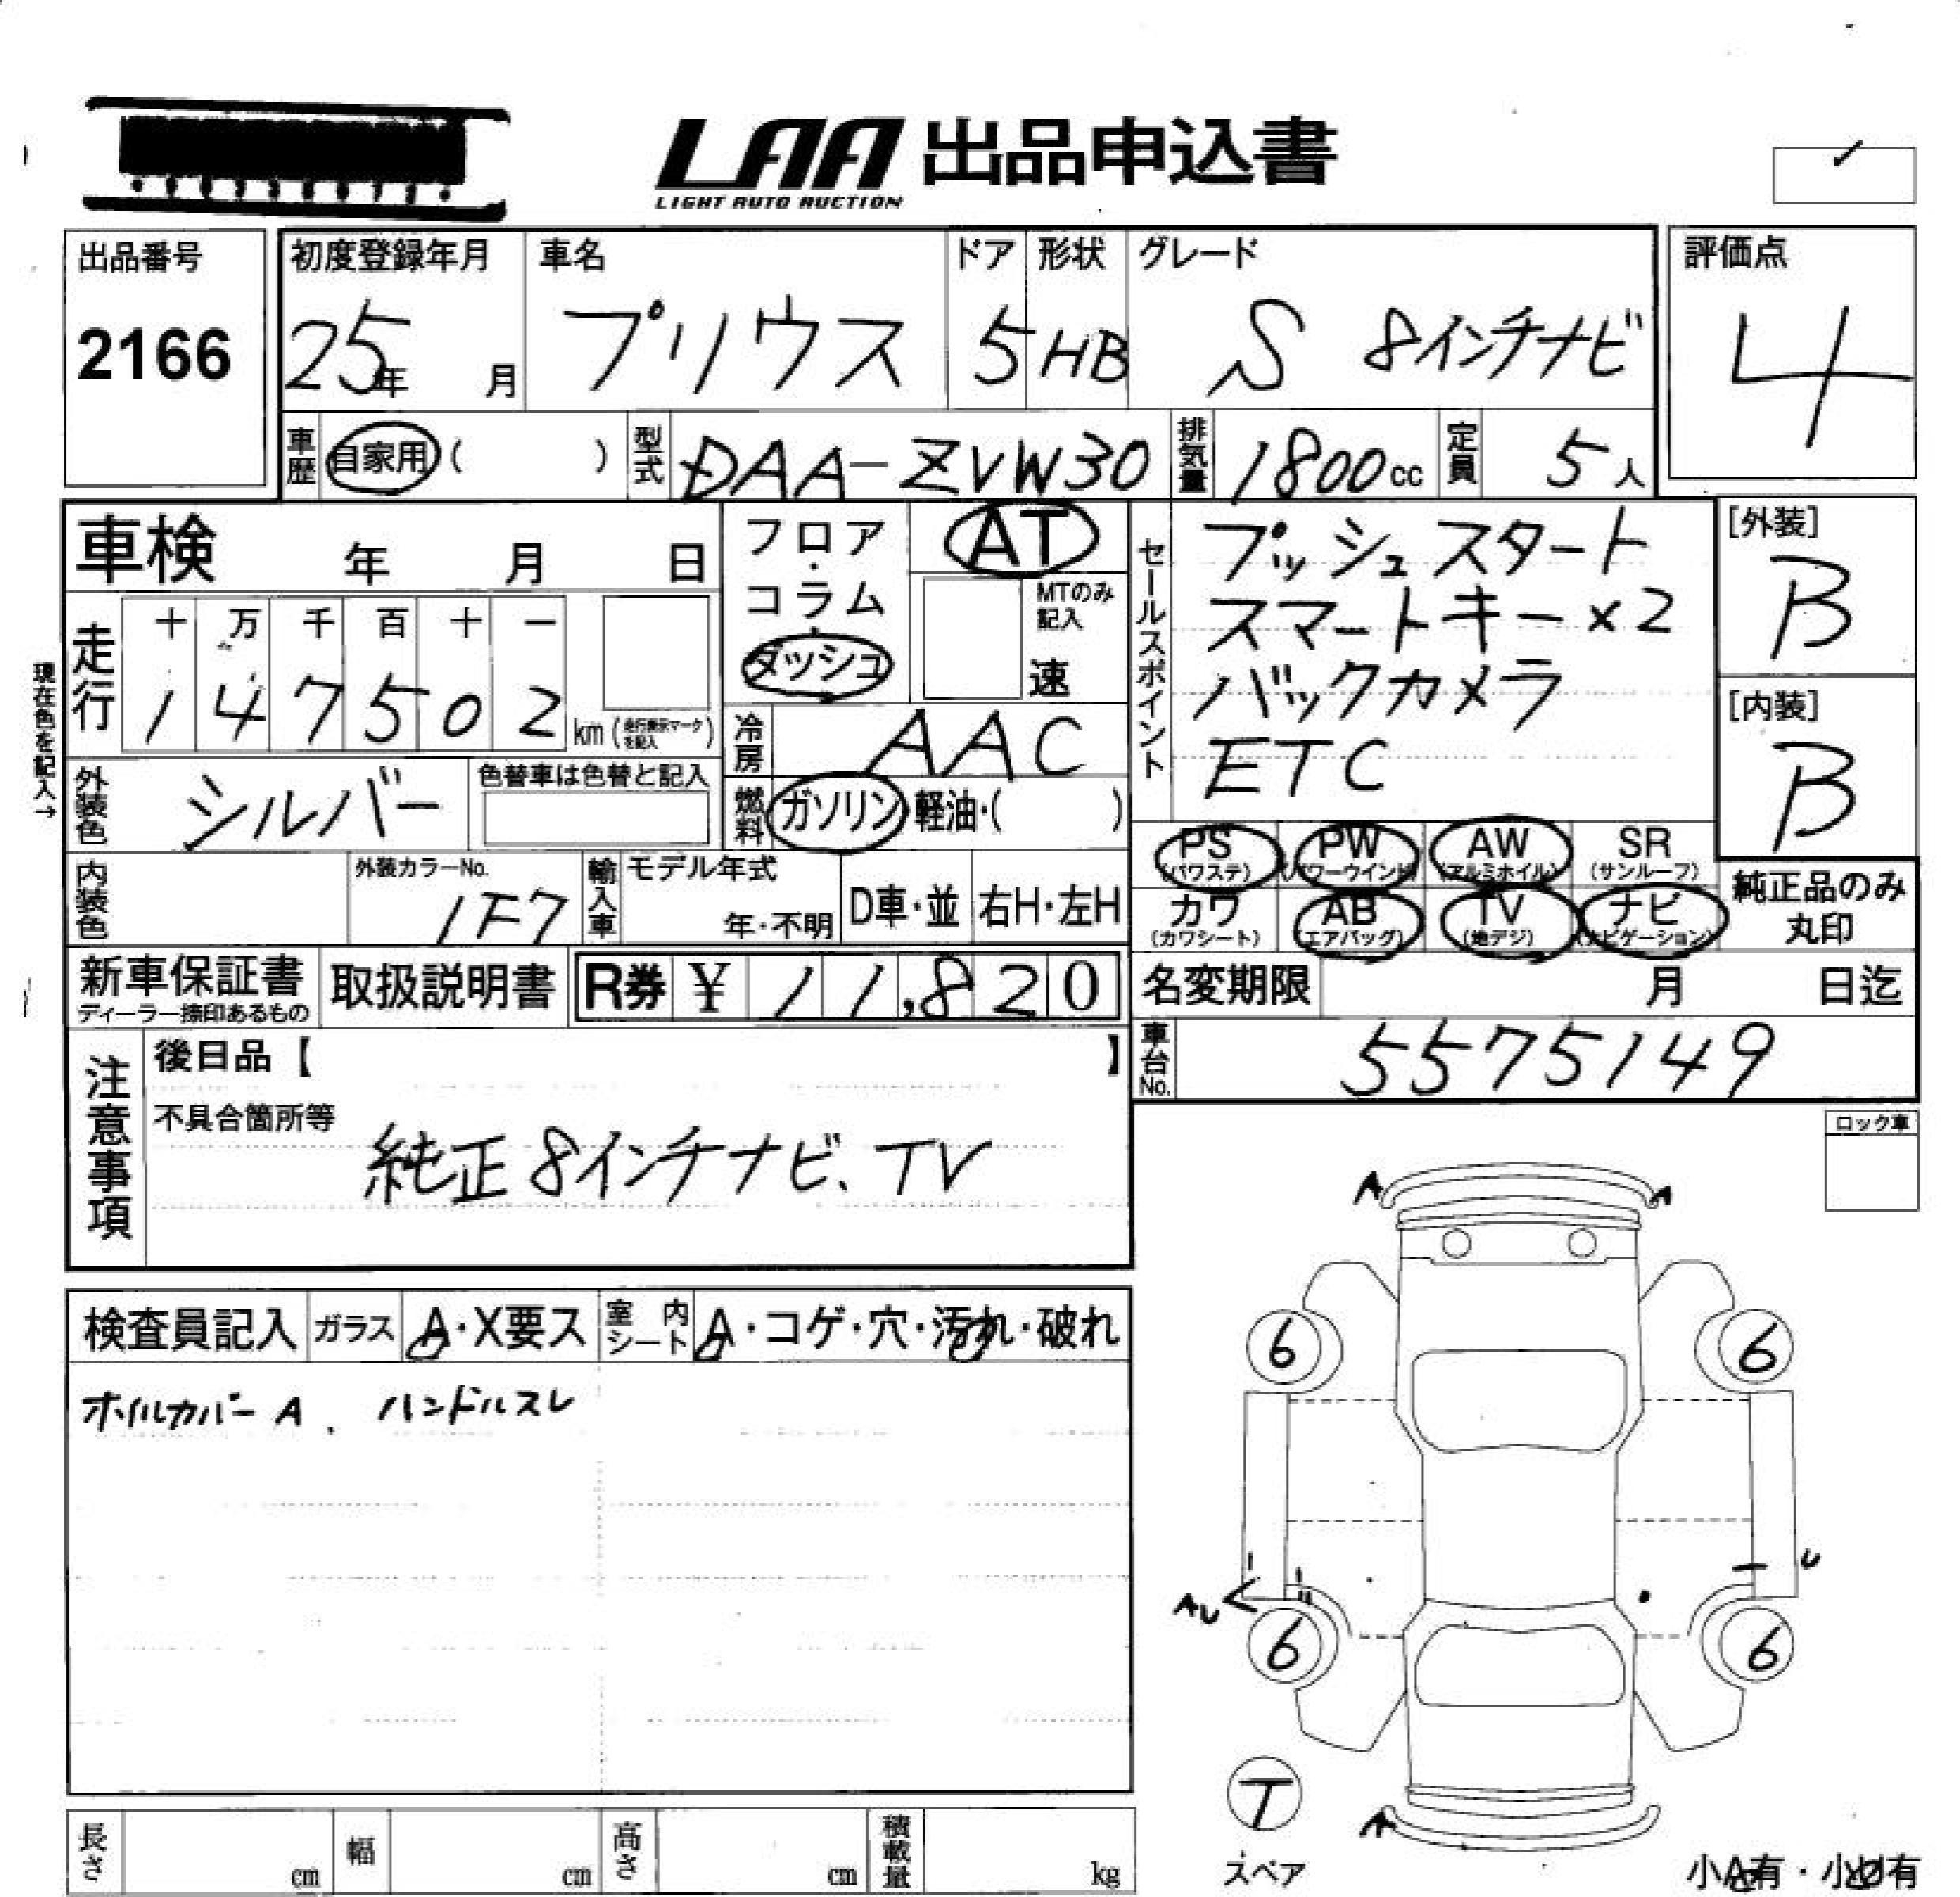 LAA 出品申込書
LIGHT AUTO AUCTION
出品番号
2166
初度登録年月
25年 月
車名
プリウス
ドア
5
形状
HB
グレード
S 8インチナビ
評価点
4
車歴 自家用 ( )
型式 DAA-ZVW30
排気量 1800cc
定員 5人
車検 年 月 日
フロア・コラム・ダッシュ
AT
MTのみ記入
速
セールスポイント
プッシュスタート
スマートキー×2
バックカメラ
ETC
[外装]
B
[内装]
B
現在色を記入→
走行 十 万 千 百 十 一
1 4 7 5 0 2 km (走行表示マークを記入)
冷房 AAC
外装色 シルバー
色替車は色替と記入
燃料 ガソリン・軽油・( )
内装色
外装カラーNo.
1F7
輸入車 モデル年式
年・不明
D車・並 右H・左H
PS (パワステ) PW (パワーウインド) AW (アルミホイル) SR (サンルーフ)
カワ (カワシート) AB (エアバッグ) TV (地デジ) ナビ (ナビゲーション)
純正品のみ丸印
新車保証書
ディーラー捺印あるもの
取扱説明書
R券 ¥ 11,820
名変期限 月 日迄
車台No. 5575149
注意事項
後日品【 】
不具合箇所等
純正8インチナビ、TV
ロック車
検査員記入 ガラス A・X要ス 室内シート A・コゲ・穴・汚れ・破れ
ホイルカバーA、ハンドルスレ
A A
6 6
U
AU
6 6
T
スペア
A
小A有・小U有
長さ cm 幅 cm 高さ cm 積載量 kg